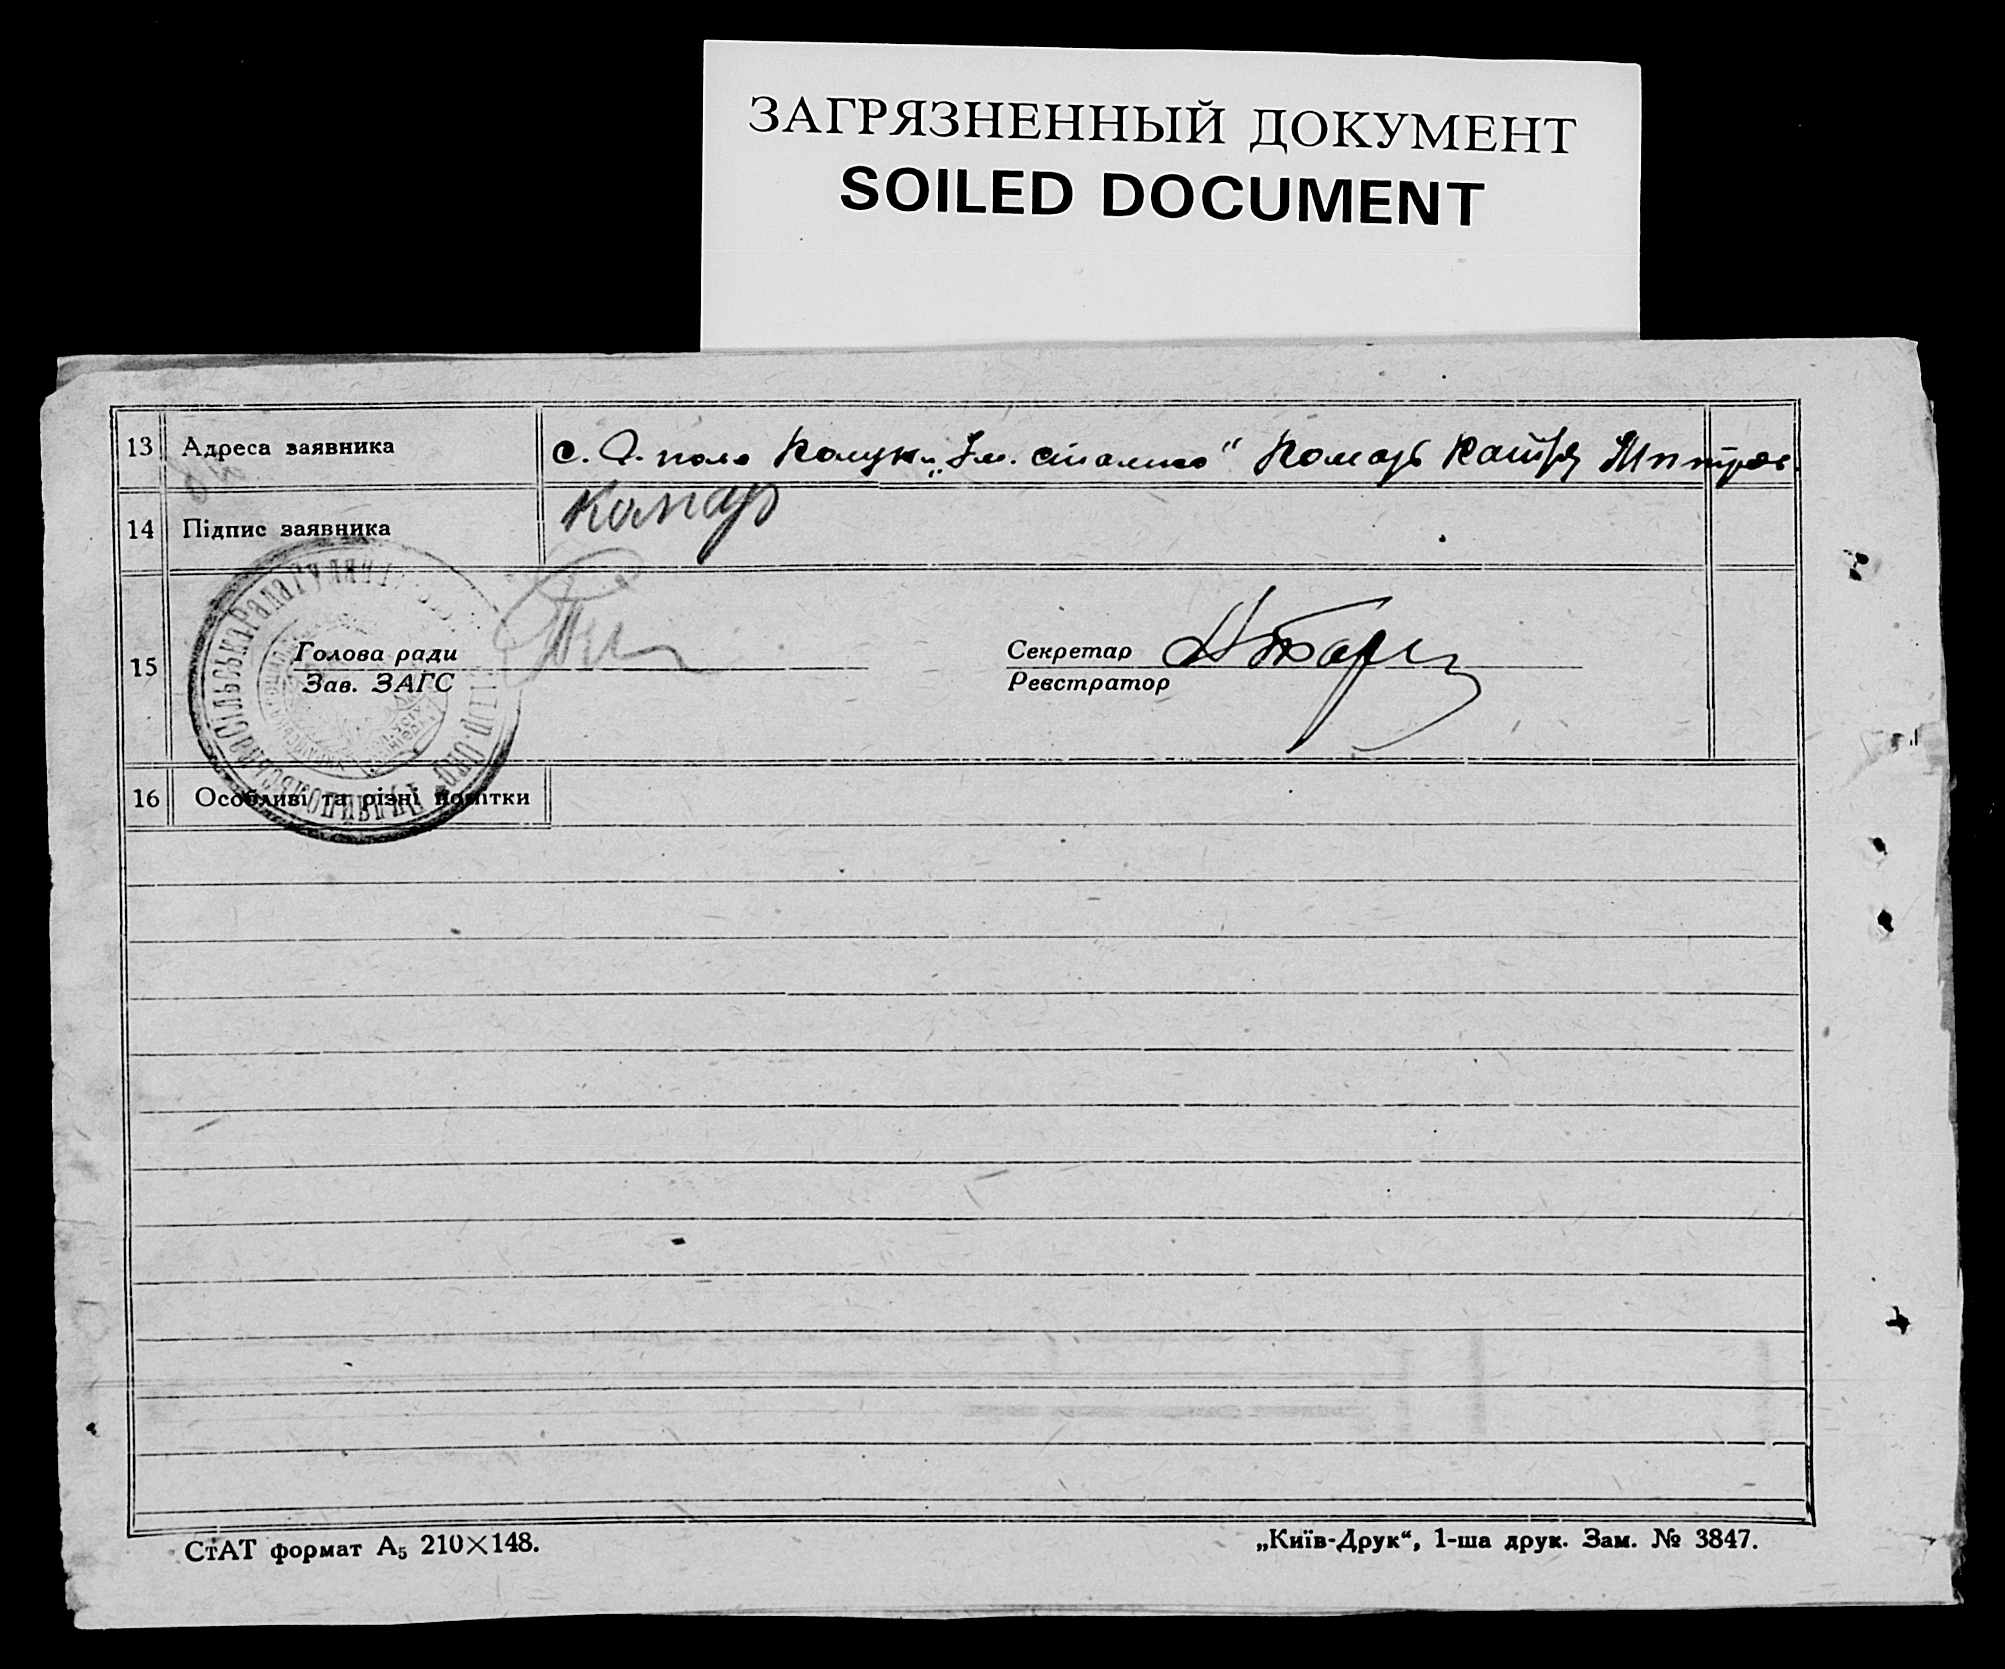 ЗАГРЯЗНЕННЫЙ ДОКУМЕНТ
SOILED DOCUMENT
13 Адреса заявника с. поле Комун. „Ім. сталіна“ Комар Катря
14 Підпис заявника Комар
15 Голова ради Секретар
Зав. ЗАГС Реєстратор
16 Особливі та різні помітки
СтАТ формат А₅ 210×148. „Київ-Друк“, 1-ша друк. Зам. № 3847.